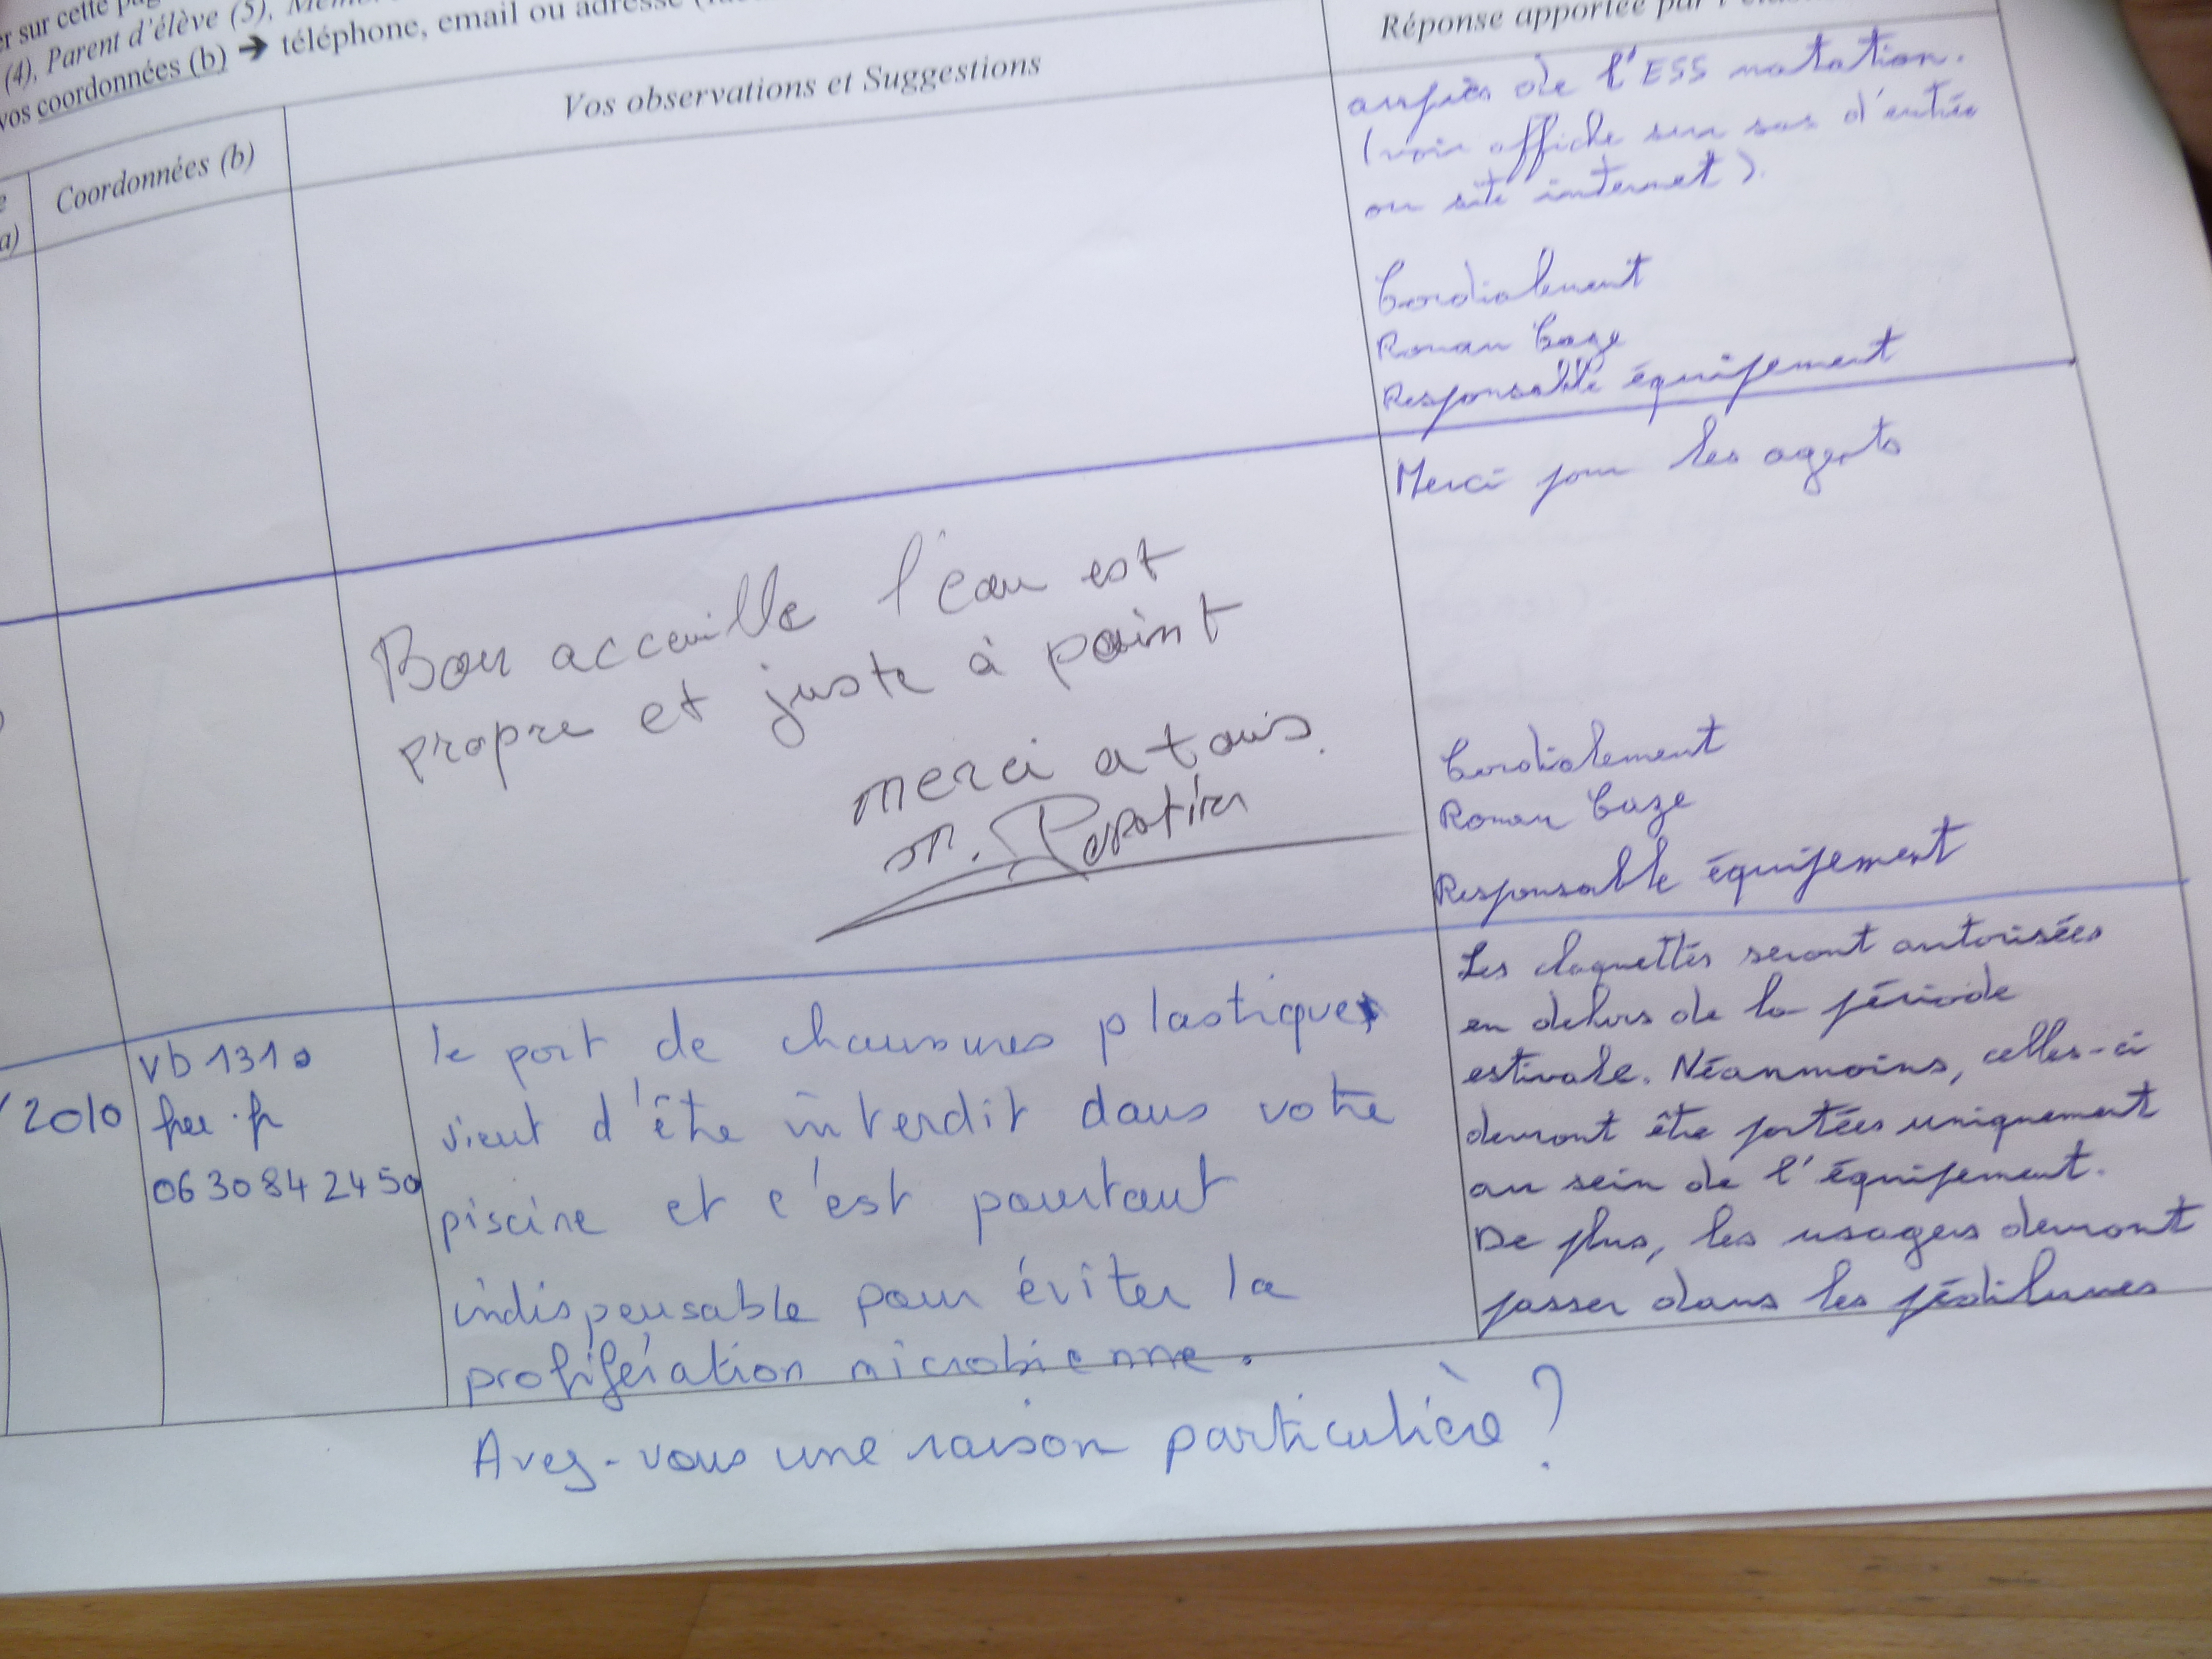 er sur cette
(4), Parent d'élève (5),
vos coordonnées (b) ➔ téléphone, email ou adresse
a)
Coordonnées (b)
Vos observations et Suggestions
Réponse apportée par
auprès de l'ESS natation.
(voir affiche sur sas d'entrée
ou site internet).
Cordialement
Roman Caze
Responsable équipement
Bon accueille l'eau est
propre et juste à point
merci a tous.
M.
Merci pour les agents
Cordialement
Roman Caze
Responsable équipement
2010
vb131@
free.fr
06 30 84 24 50
le port de chaussures plastiques
vient d'être interdit dans votre
piscine et c'est pourtant
indispensable pour éviter la
prolifération microbienne.
Avez-vous une raison particulière ?
Les claquettes seront autorisées
en dehors de la période
estivale. Néanmoins, celles-ci
devront être portées uniquement
au sein de l'équipement.
De plus, les usagers devront
passer dans les pédiluves